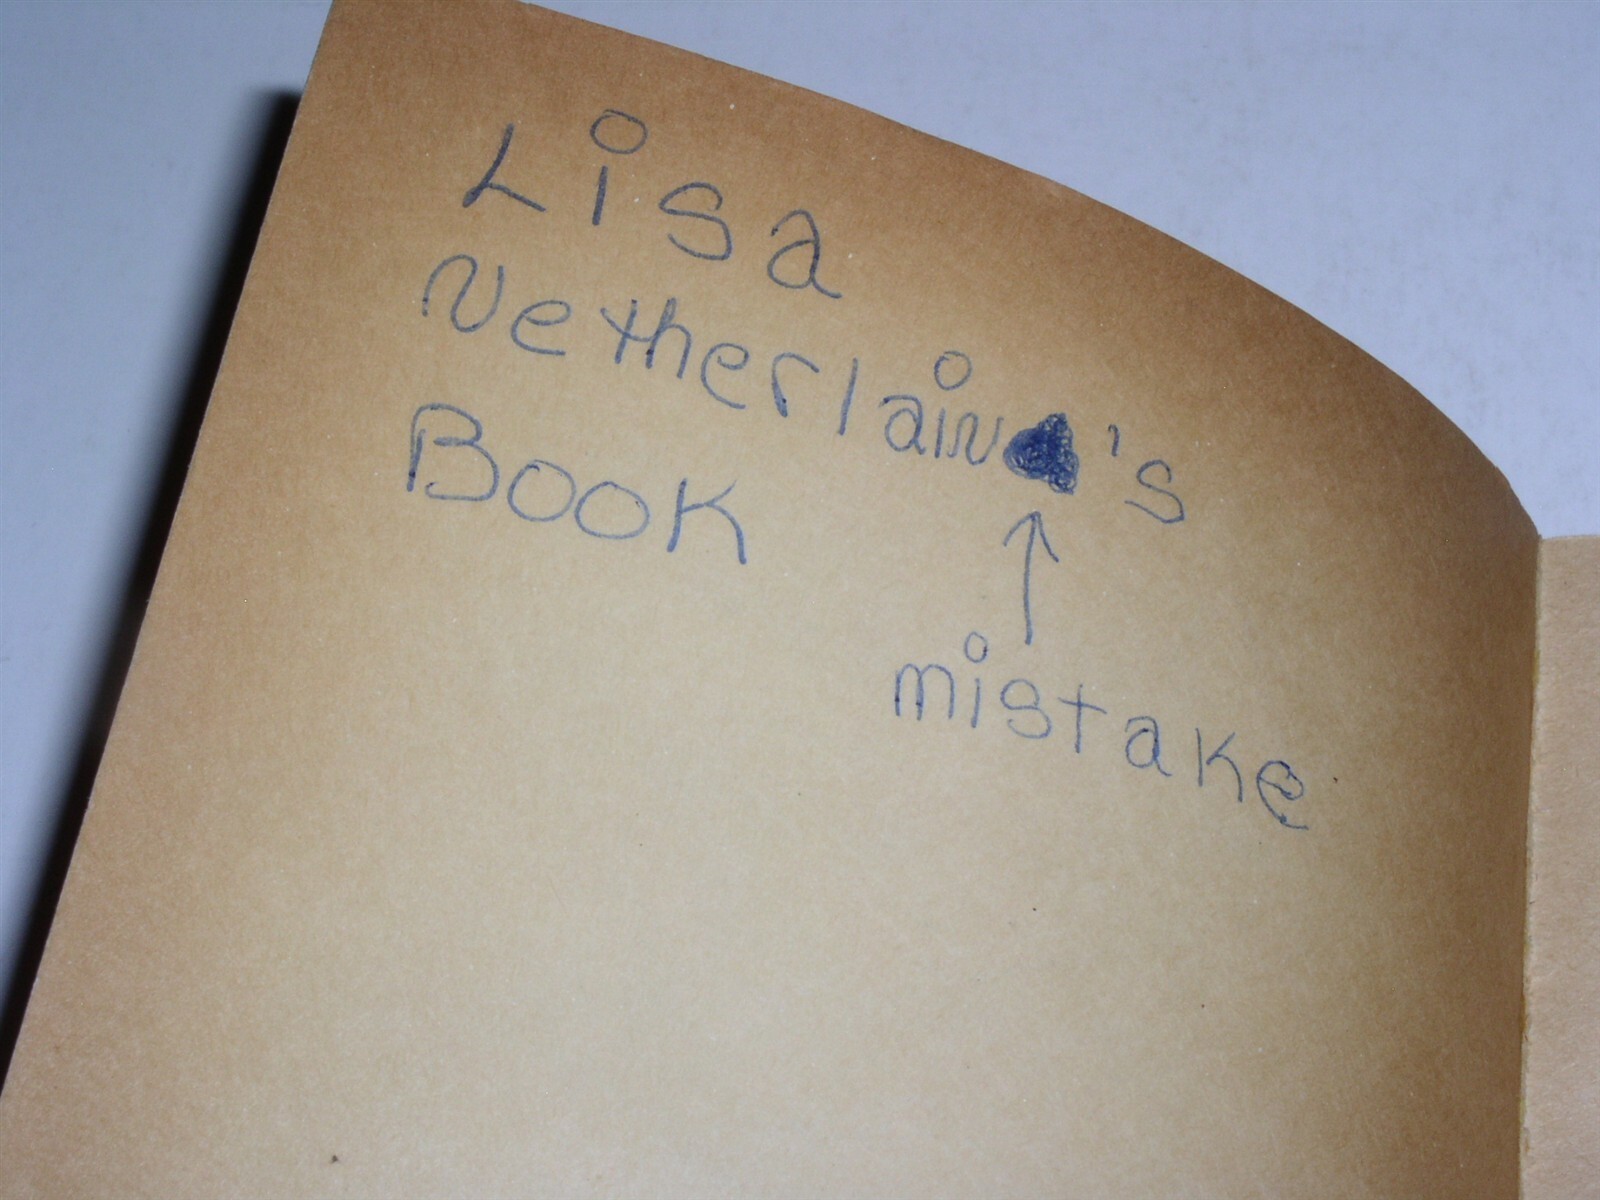 Lisa
Netherlain's
Book
mistake